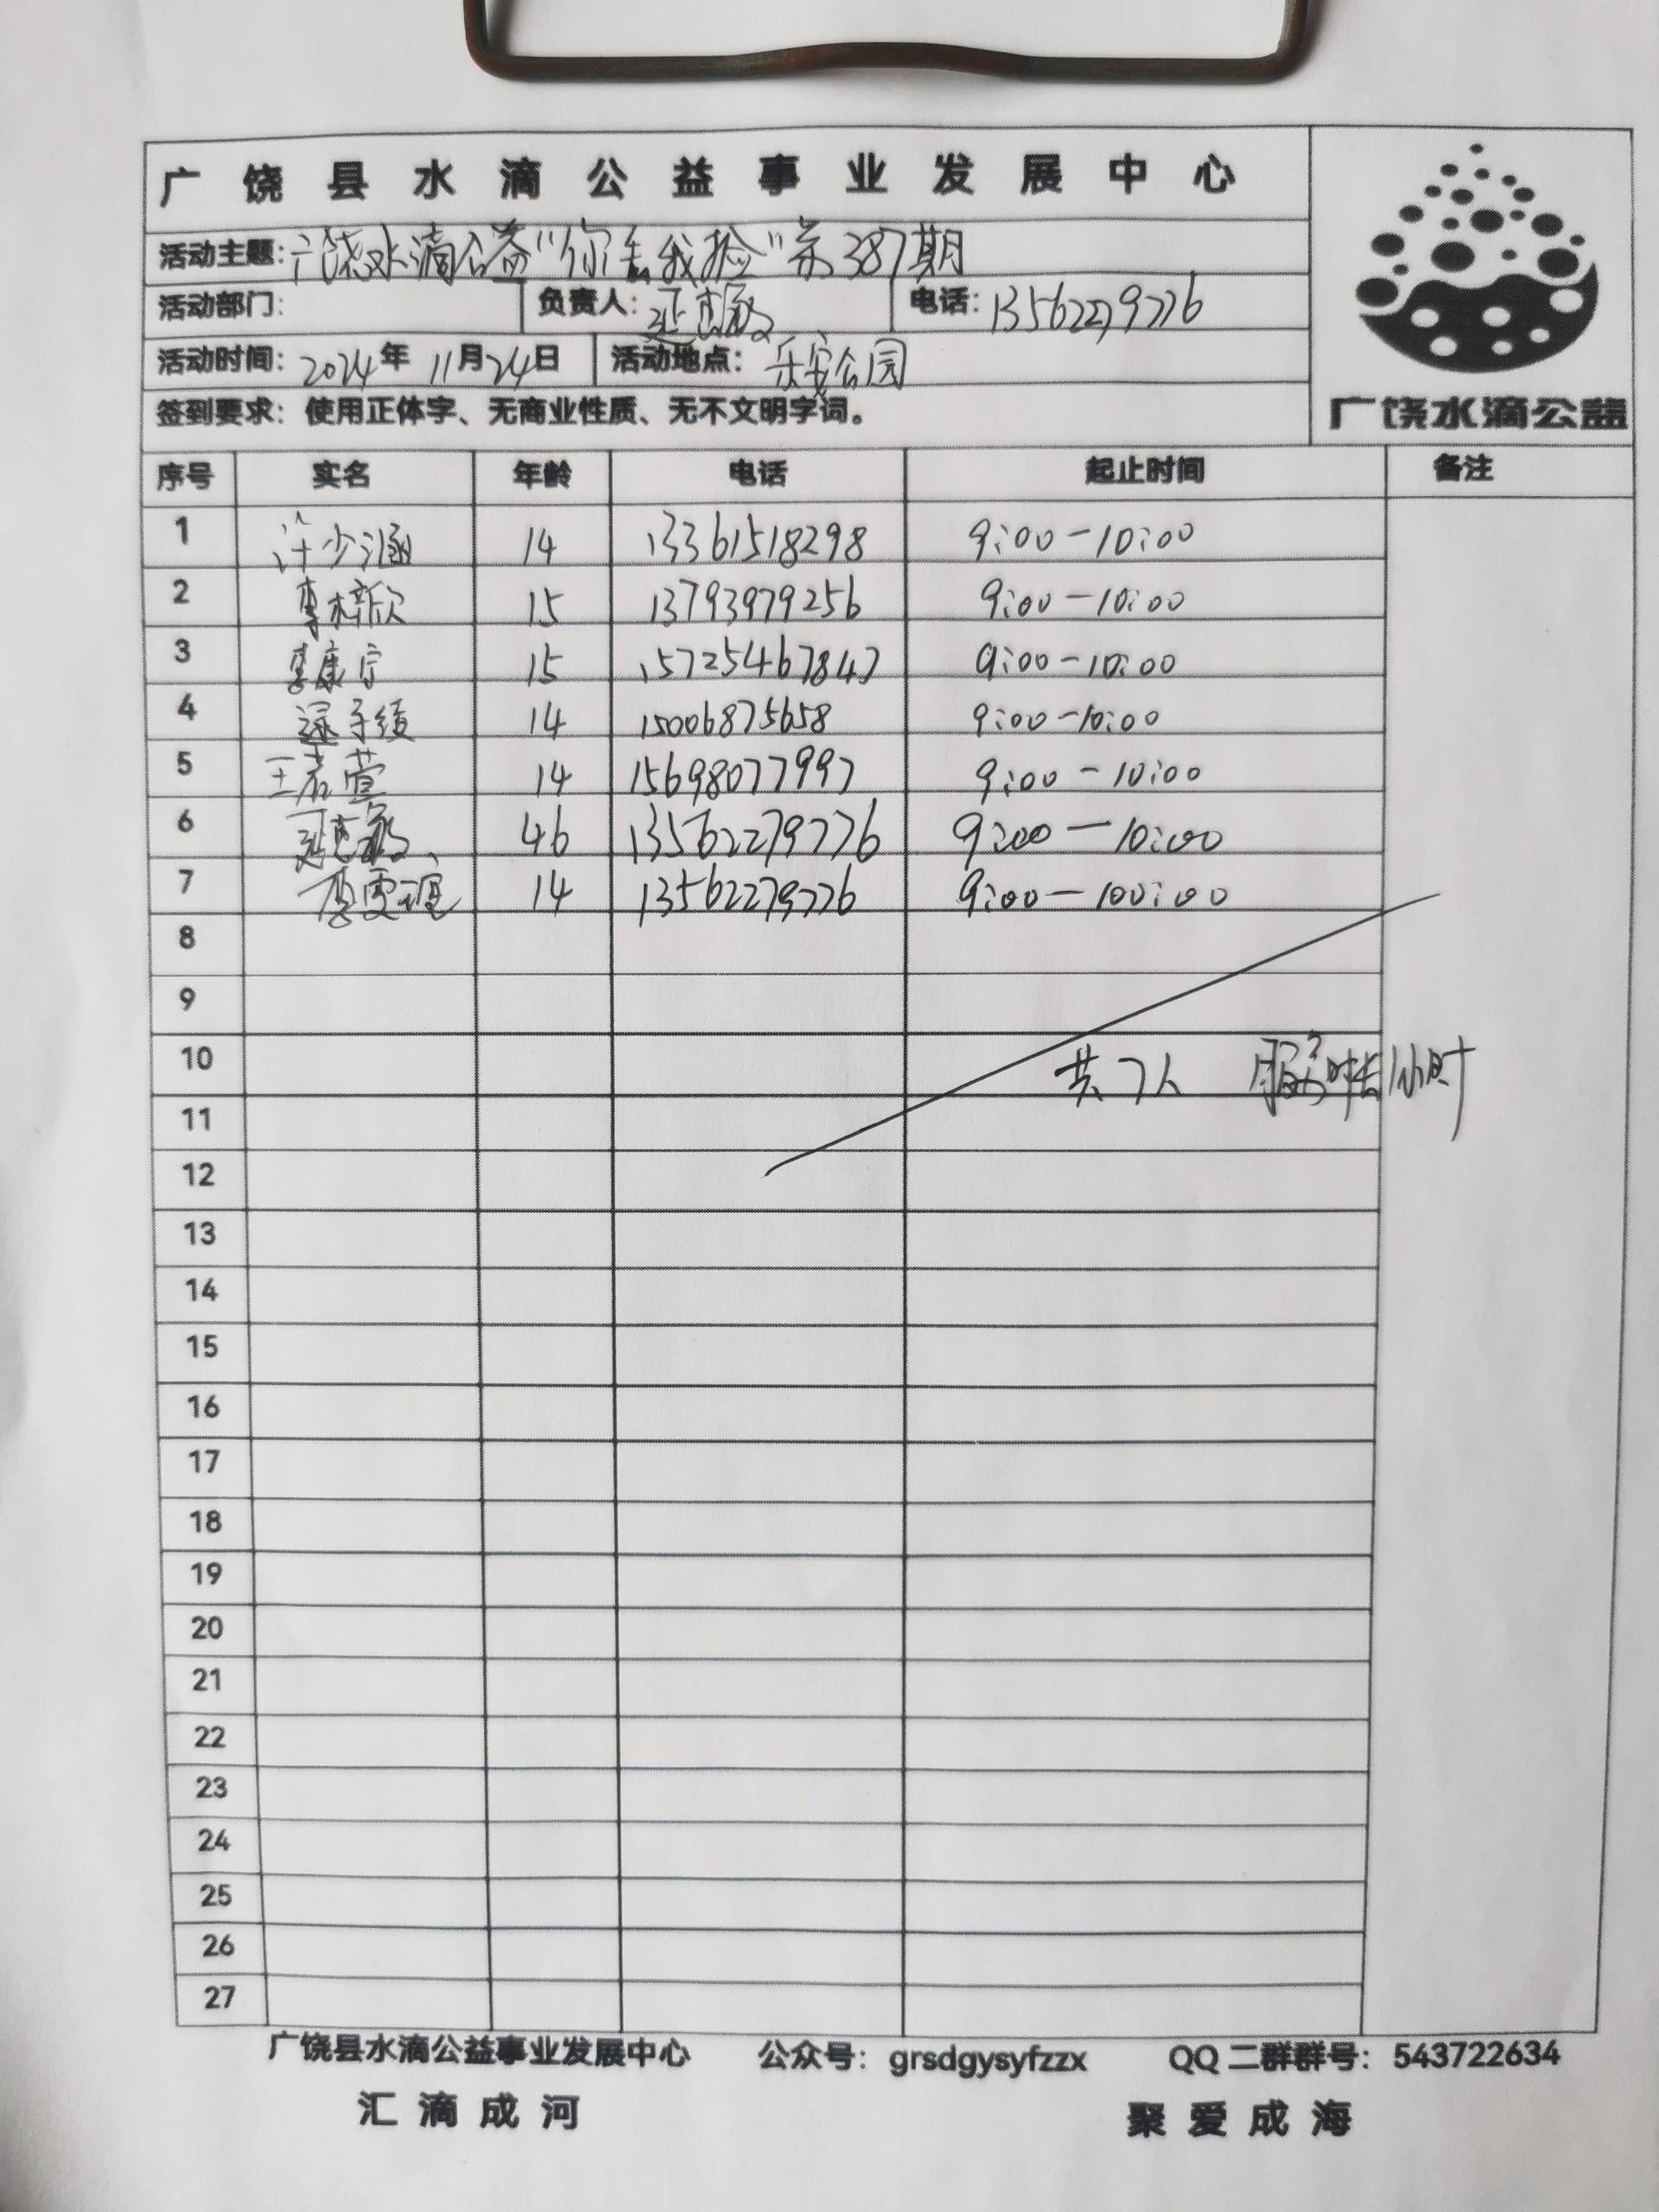 广饶县水滴公益事业发展中心
活动主题：广饶水滴公益"你丢我捡"第387期
活动部门： 负责人：延惠敏 电话：13562279776
活动时间：2024年11月24日 活动地点：乐安公园
签到要求：使用正体字、无商业性质、无不文明字词。
广饶水滴公益
序号 实名 年龄 电话 起止时间 备注
1 许少涵 14 13361518298 9:00-10:00
2 李梓欣 15 13793979256 9:00-10:00
3 李康宁 15 15725467847 9:00-10:00
4 14 15006875658 9:00-10:00
5 王若萱 14 15698077997 9:00-10:00
6 延惠敏 46 13562279776 9:00-10:00
7 14 13562279776 9:00-100:00
8
9
10 共7人 服务时长1小时
11
12
13
14
15
16
17
18
19
20
21
22
23
24
25
26
27
广饶县水滴公益事业发展中心 公众号：grsdgysyfzzx QQ二群群号：543722634
汇滴成河 聚爱成海